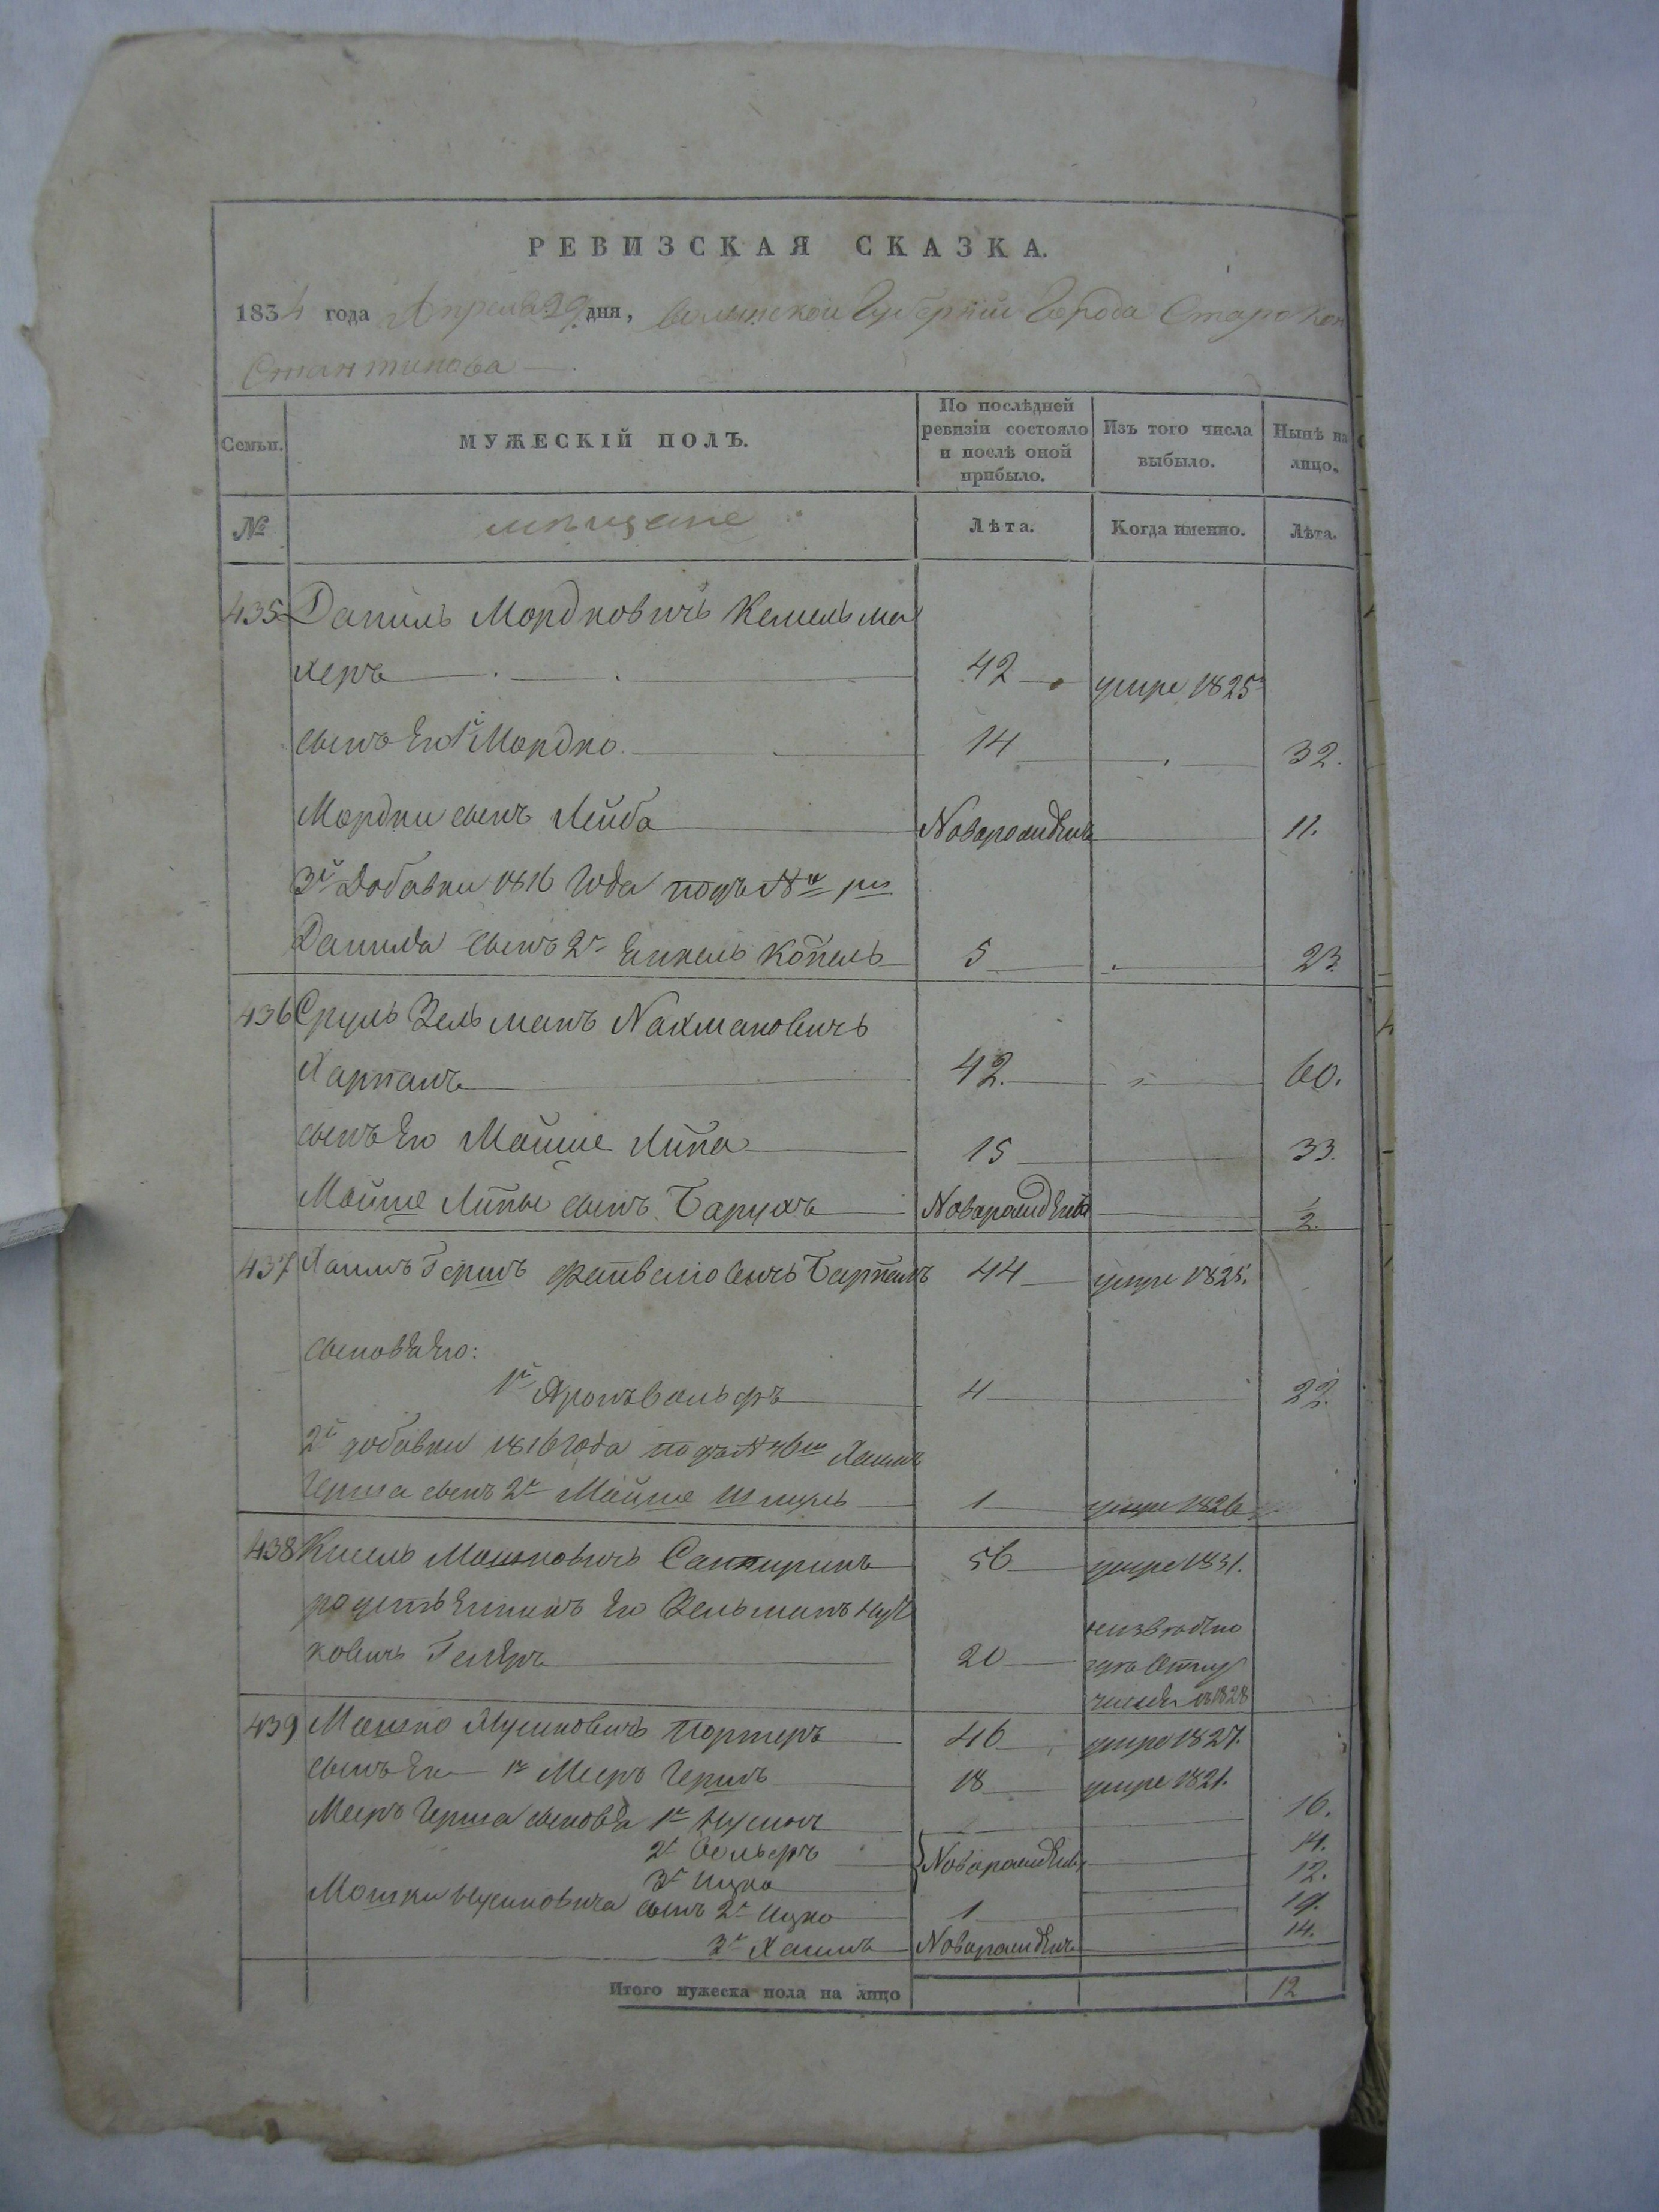 РЕВИЗСКАЯ СКАЗКА.
1834 года Апреля 29 дня, Волынской Губернии Города Старокон
стантинова
Семьи.
МУЖЕСКІЙ ПОЛЪ.
По послѣдней ревизіи состояло и послѣ оной прибыло.
Изъ того числа выбыло.
Нынѣ на лицо.
№ мѣщане Лѣта. Когда именно. Лѣта.
435 Даниль Мордковичъ Кесельма
херъ 42 умре 1825
сынъ Его 1й Мордко 14 32.
Мордки сынъ Лейба Новорожденъ 11.
Зъ Добавки 1816 Года подъ №
Данила сынъ 2й Янкель Копель 5 23.
436 Сруль Зельманъ Нахмановичъ
Харпанъ 42. 60.
сынъ Его Мойше Липа 15 33.
Мойше Липы сынъ Барухъ Новорожденъ 1/2.
437 Хаимъ Гершъ Файвелювичъ 44 умре 1825.
сыновья Его:
1й Аронъ Вольфъ 4 22.
Зъ добавки 1816 года подъ № Хаимъ
Герша сынъ 2й Мойше Шмуль 1 умре 1826
438 Кисель Мошковичъ 56 умре 1831.
родственникъ Его Зельманъ
ковичъ 20 неизвѣстно
где
1828
439 Мошко Нусиновичъ Портеръ 46 умре 1827.
сынъ Его 1й Мееръ Гершъ 18 умре 1821.
Мееръ Герша сыновья 1й Нусинъ 16.
2й Вольфъ Новорожденъ 14.
3й Ицко 12.
Мошки Нусиновича сынъ 2й Ицко 1 19.
3й Хаимъ Новорожденъ 14.
Итого мужеска пола на лицо 12